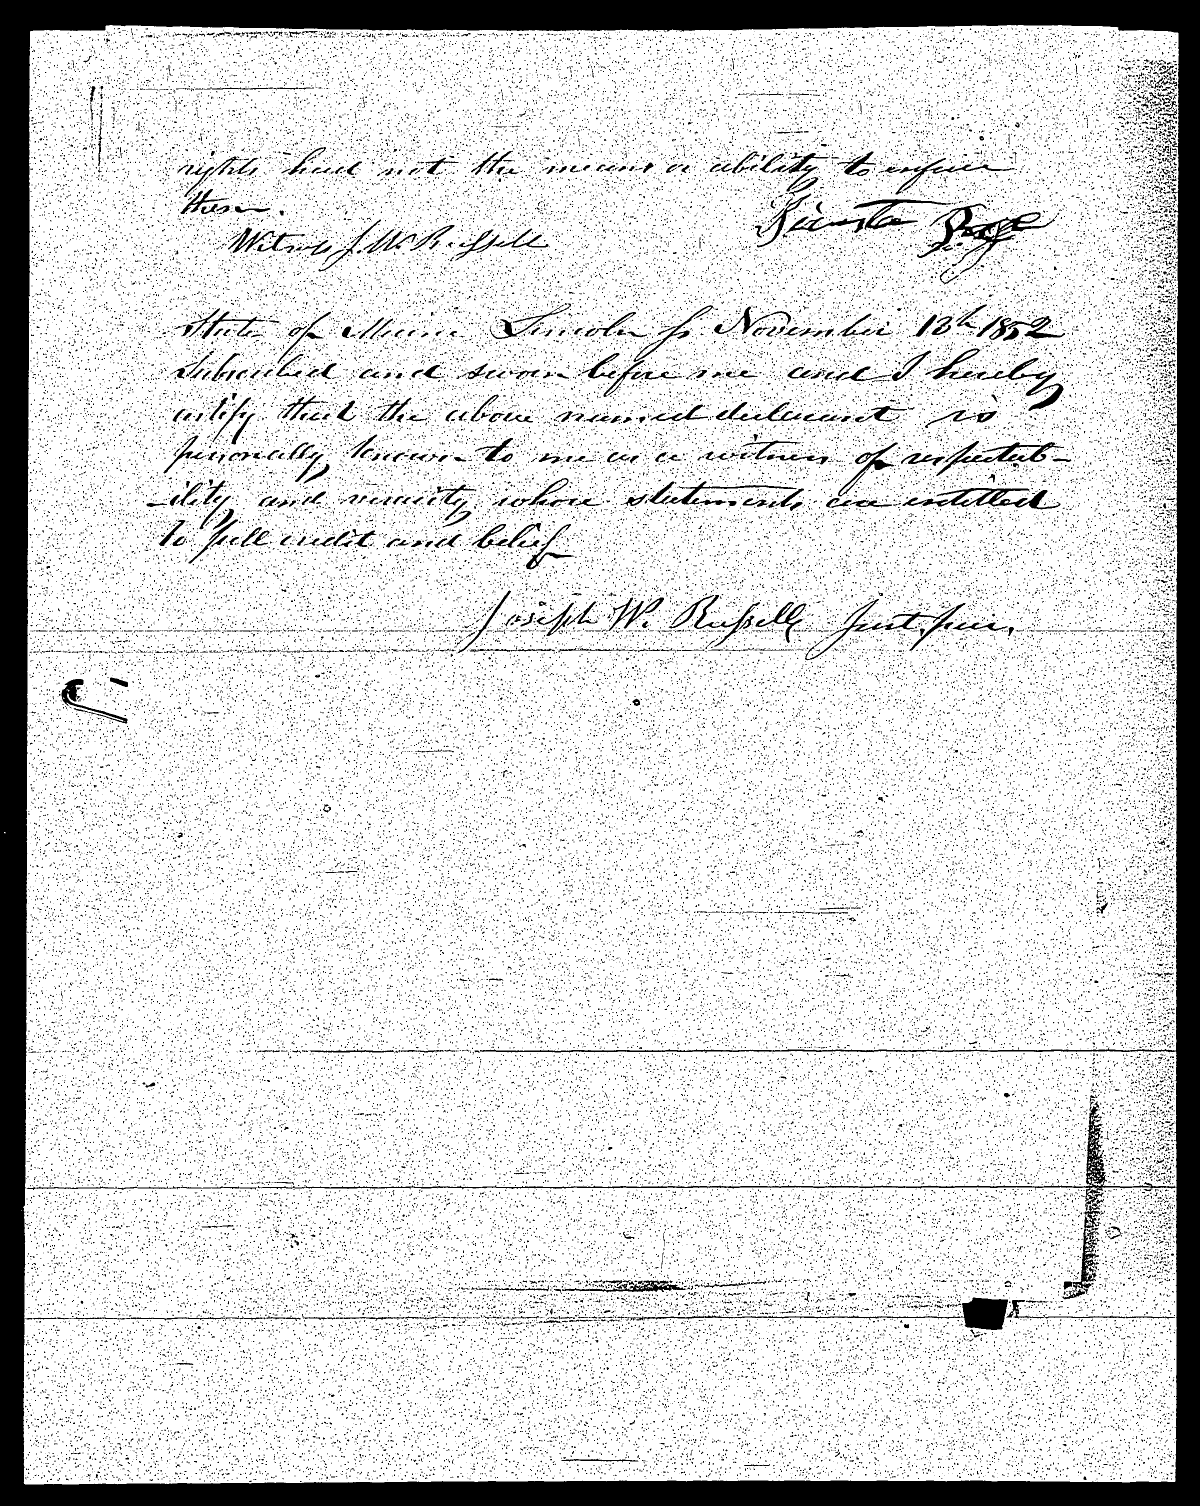 rights had not the means or ability to enforce
them.
Witness J. W. Russell
State of Maine Lincoln ss November 13th 1852
Subscribed and sworn before me and I hereby
certify that the above named declarant is
personally known to me as a witness of respectab-
-ility and veracity whose statements are entitled
to full credit and belief
Joseph W. Russell Just. peace.